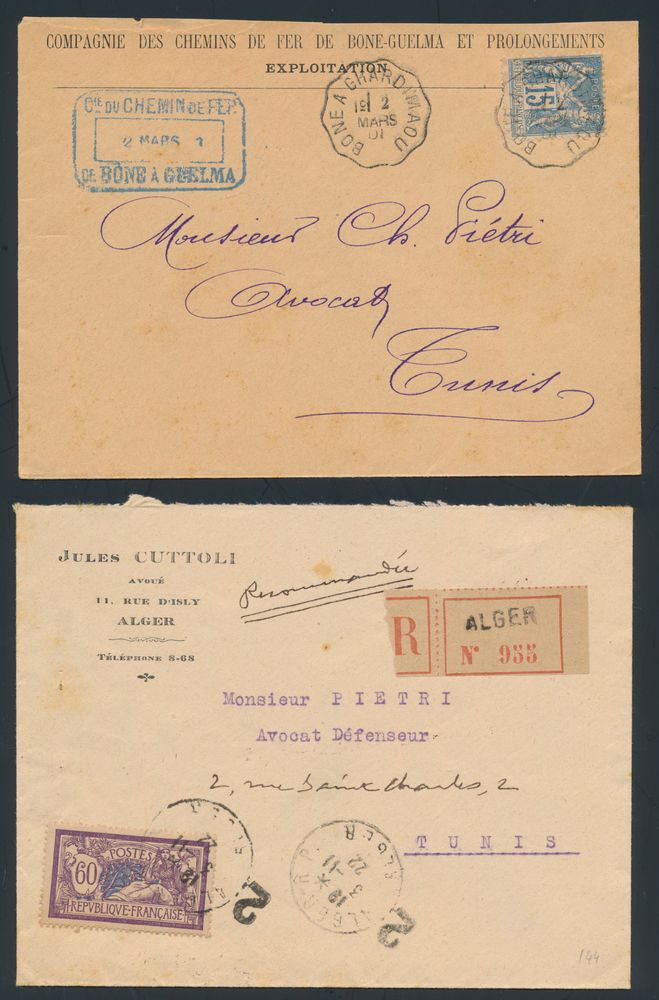 COMPAGNIE DES CHEMINS DE FER DE BONE-GUELMA ET PROLONGEMENTS
EXPLOITATION
Cie DU CHEMIN DE FER
2 MARS 1
DE BÔNE À GUELMA
BONE A GHARDIMAOU
2
MARS
01
15
Monsieur Ch. Piétri
Avocat
Tunis
JULES CUTTOLI
AVOUÉ
11, RUE D'ISLY
ALGER
TÉLÉPHONE 8-68
Recommandée
R
ALGER
N° 955
Monsieur PIETRI
Avocat Défenseur
2, rue Saint Charles, 2
TUNIS
60
POSTES
REPVBLIQUE·FRANÇAISE
ALGER R.P. ALGER
19
3 -11
22
2
2
144